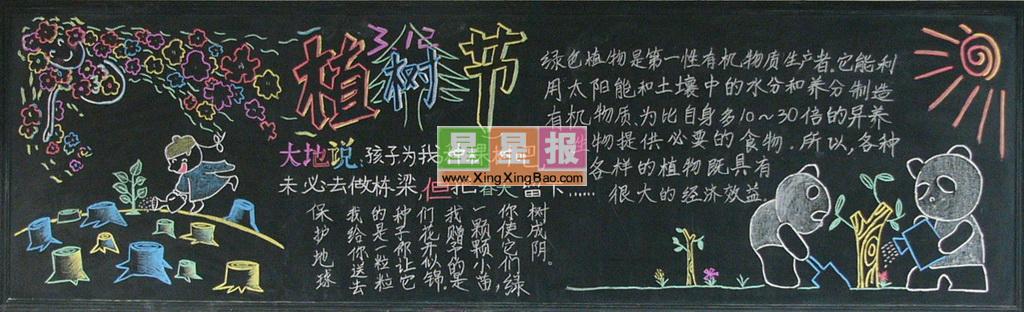 3.12
植树节
大地说:孩子为我
未必去做栋梁,但把春天留下……
绿色植物是第一性有机物质生产者。它能利
用太阳能和土壤中的水分和养分制造
有机物质.为比自身多10～30倍的异养
物提供必要的食物.所以,各种
各样的植物既具有
很大的经济效益.
保护地球
我给你送去
的是一粒粒
种子你让它
们花开似锦,
我赠的是
一颗颗小苗,
你使它们绿
树成阴。
星星报
www.XingXingBao.com